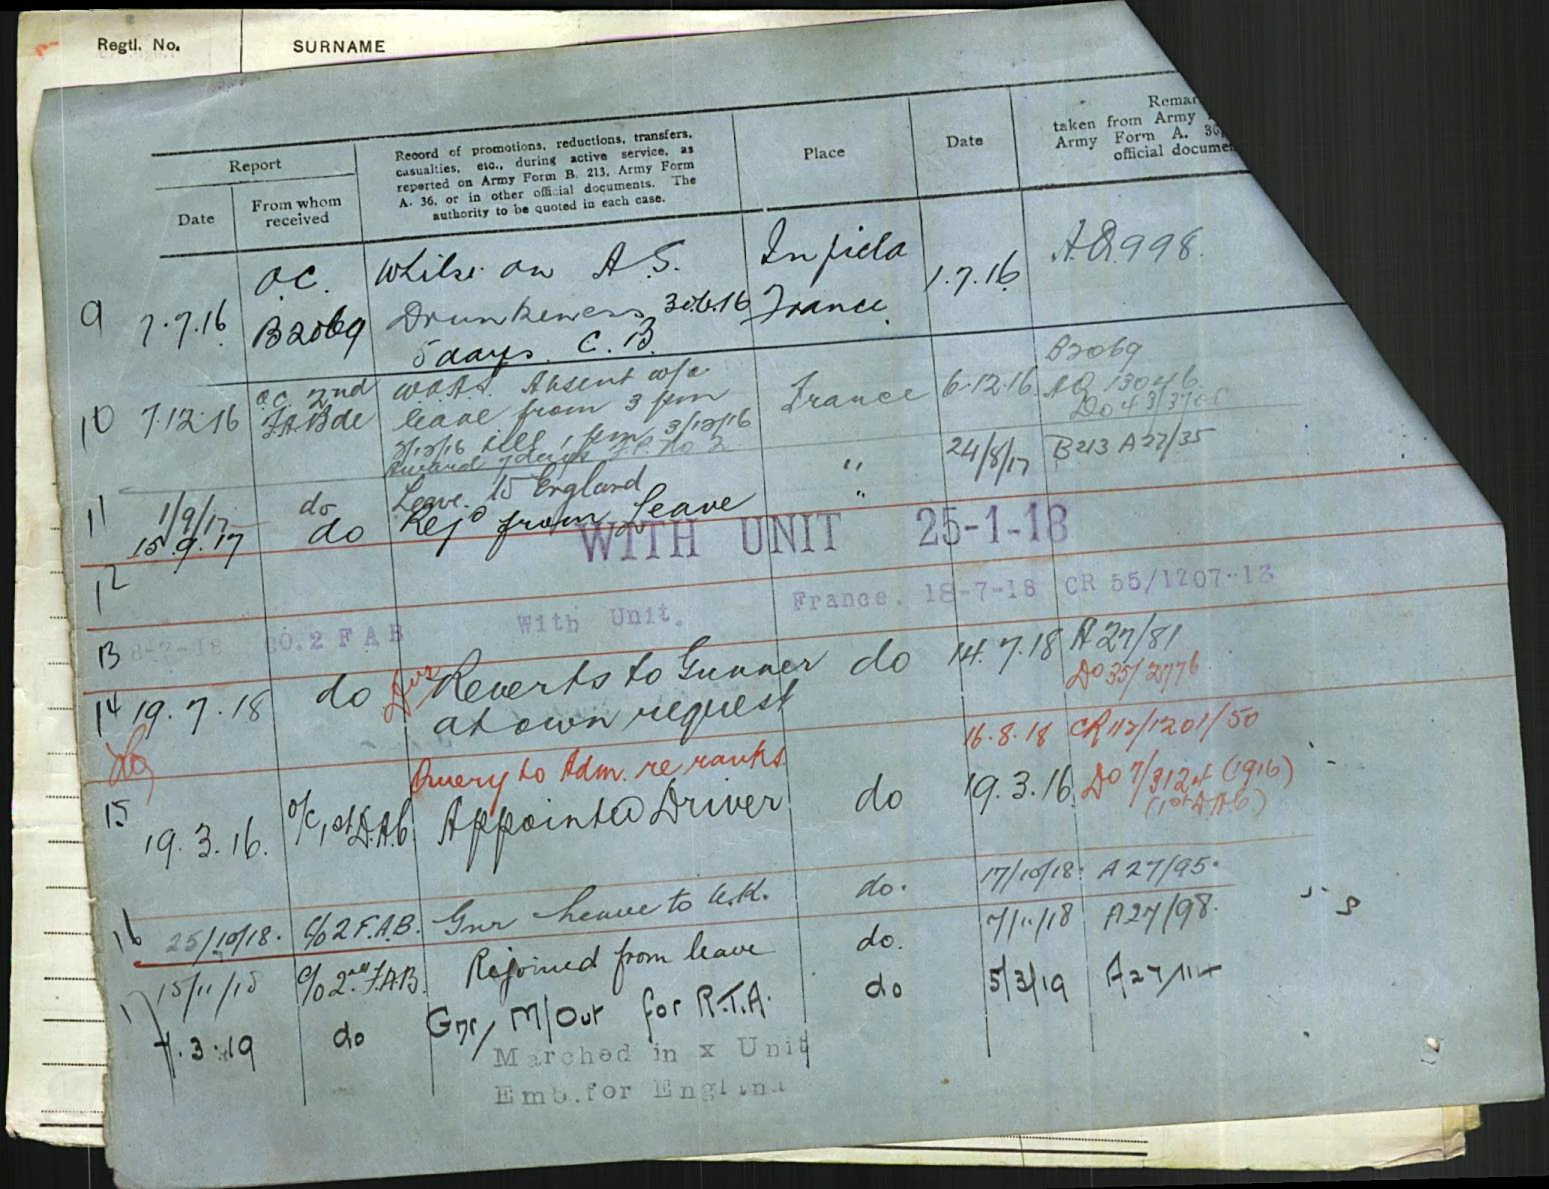 Regtl. No. SURNAME
Report
Date
From whom received
Record of promotions, reductions, transfers,
casualties, etc., during active service, as
reported on Army Form B. 213, Army Form
A. 36, or in other official documents. The
authority to be quoted in each case.
Place
Date
Remar
taken from Army
Army Form A. 36,
official docume
O.C. Whilst on A.S. In field
9 7.7.16 B2069 Drunkeness 30.6.16 France 1.7.16 A.Q.998
5 days. C.B.
B2069
10 7.12.16 O.C. 2nd W.O.A.S. Absent w/o France 6.12.16 AQ 13046
FABde leave from 3 pm
3/12/16 till 1 pm 3/12/16
No 2
11 1/9/17 do Leave to England " 24/8/17 B213 A27/35
15.9.17 do Rejd from Leave "
WITH UNIT 25-1-18
12
13 8-7-18 CO.2 FAB With Unit. France. 18-7-18 CR 55/1207-13
14 19.7.18 do Dvr Reverts to Gunner do 14.7.18 A27/81
at own request Do 35/2776
Query to Adm. re ranks 16.8.18 CR 112/1201/50
15 19.3.16. O/C 1st D.A.C. Appointed Driver do 19.3.16 Do 7/312 (1916)
16 25/10/18. C/O 2 F.A.B. Gnr Leave to U.K. do. 17/10/18. A27/95.
15/11/18 C/O 2nd F.A.B. Rejoined from leave do. 7/11/18 A27/98.
17 7.3.19 do Gnr, M/Out for R.T.A. do 5/3/19
Marched in x Unit
Emb.for England